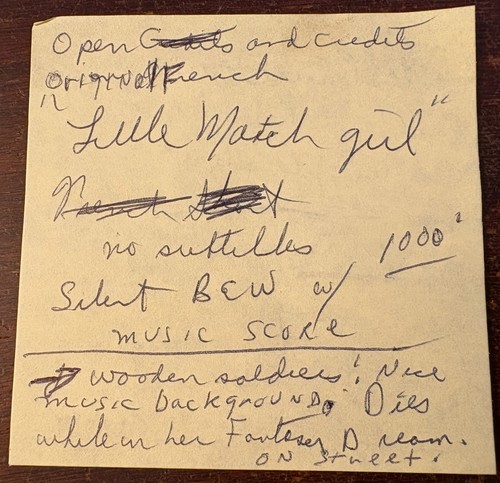 Open Credits and credits
original French
"Little Match girl"
French Short
no subtitles 1000'
Silent B&W w/
music score
wooden soldiers! Nice
music background. Dies
while in her Fantasy Dream.
on street.